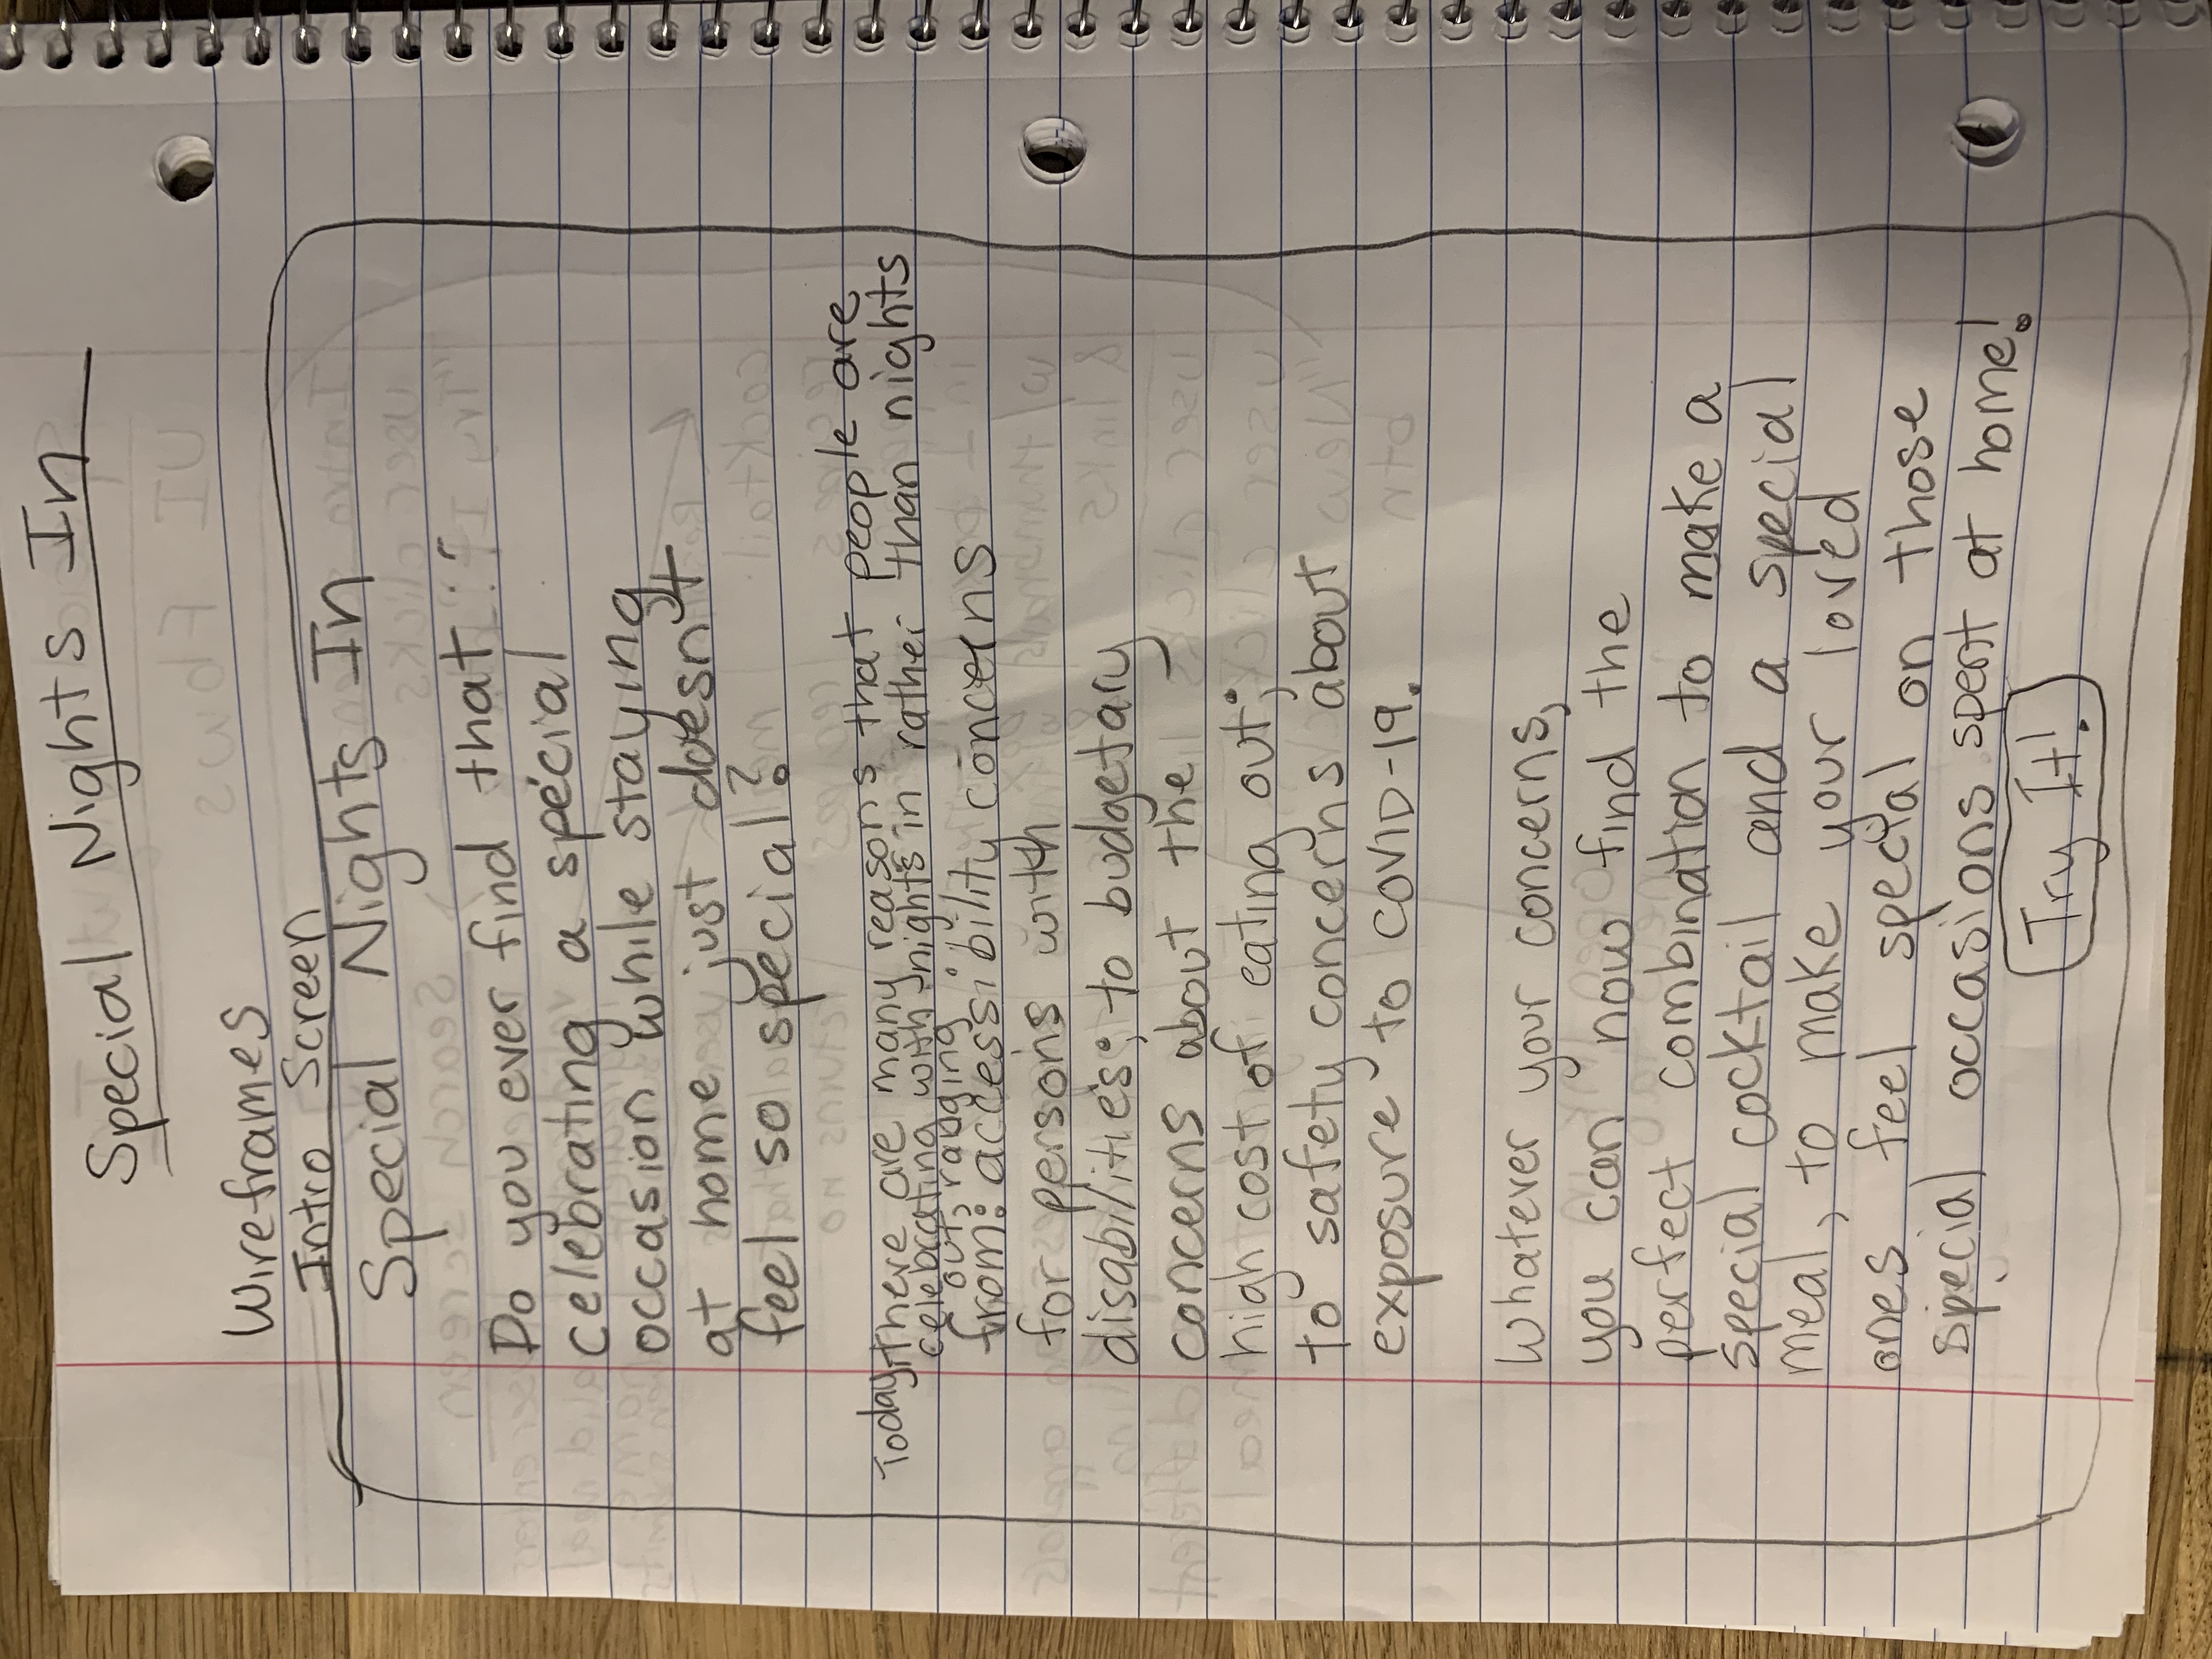 Special Nights In
Wireframes
Intro Screen
Special Nights In
Do you ever find that
celebrating a special
occasion while staying
at home just doesn't
feel so special?
Today, there are many reasons that people are
celebrating with nights in rather than nights
out, ranging
from: accessibility concerns
for persons with
disabilities; to budgetary
concerns about the
high cost of eating out;
to safety concerns about
exposure to COVID-19.
Whatever your concerns,
you can now find the
perfect combination to make a
special cocktail and a special
meal, to make your loved
ones feel special on those
special occasions spent at home!
Try It!